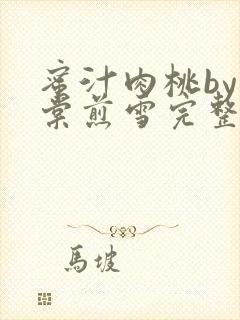 蜜汁肉桃by
棠煎雪完整
馬坡